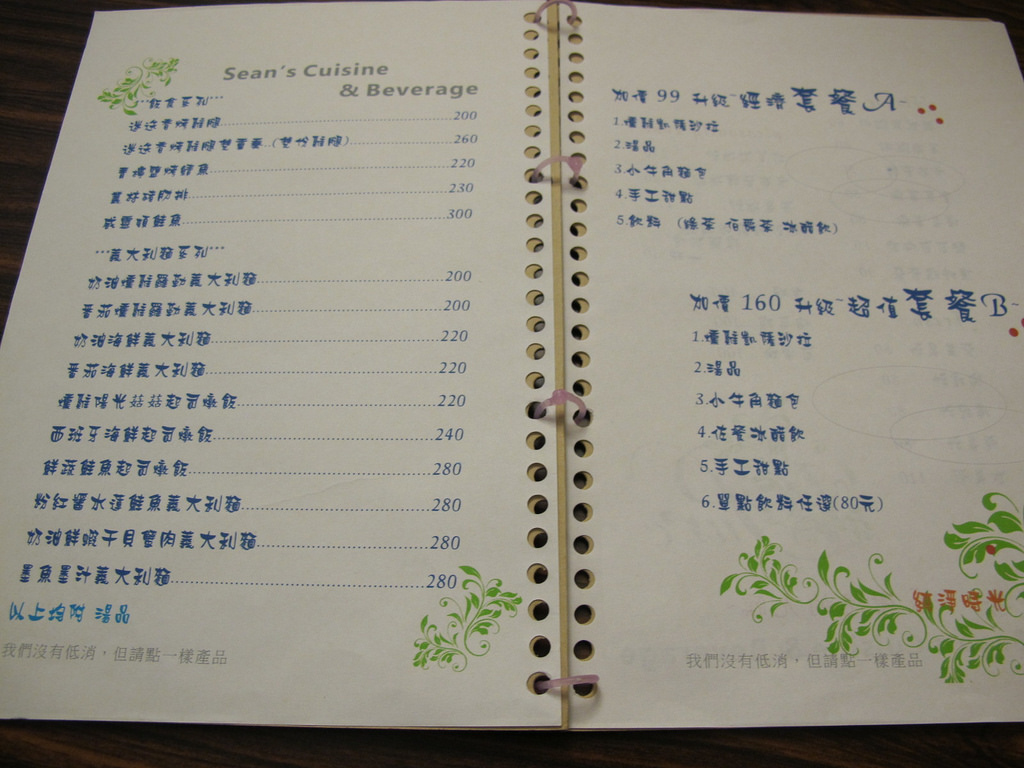 Sean's Cuisine
& Beverage
...飯食系列...
迷迭香烤雞腿........200
迷迭香烤雞腿雙重奏..(雙份雞腿)........260
香檸鹽烤鯖魚........220
........230
........300
...義大利麵系列...
奶油燻雞羅勒義大利麵........200
番茄燻雞羅勒義大利麵........200
奶油海鮮義大利麵........220
番茄海鮮義大利麵........220
燻雞陽光菇菇起司燉飯........220
西班牙海鮮起司燉飯........240
鮮蔬鮭魚起司燉飯........280
粉紅醬水漾鮭魚義大利麵........280
奶油鮮蝦干貝蟹肉義大利麵........280
墨魚墨汁義大利麵........280
以上均附 湯品
我們沒有低消，但請點一樣產品
加價 99 升級~經濟套餐A~
1.燻雞凱薩沙拉
2.湯品
3.小牛角麵包
4.手工甜點
5.飲料 (綠茶 伯爵茶 冰醋飲)
加價 160 升級~超值套餐B~
1.燻雞凱薩沙拉
2.湯品
3.小牛角麵包
4.佐餐冰醋飲
5.手工甜點
6.單點飲料任選(80元)
我們沒有低消，但請點一樣產品